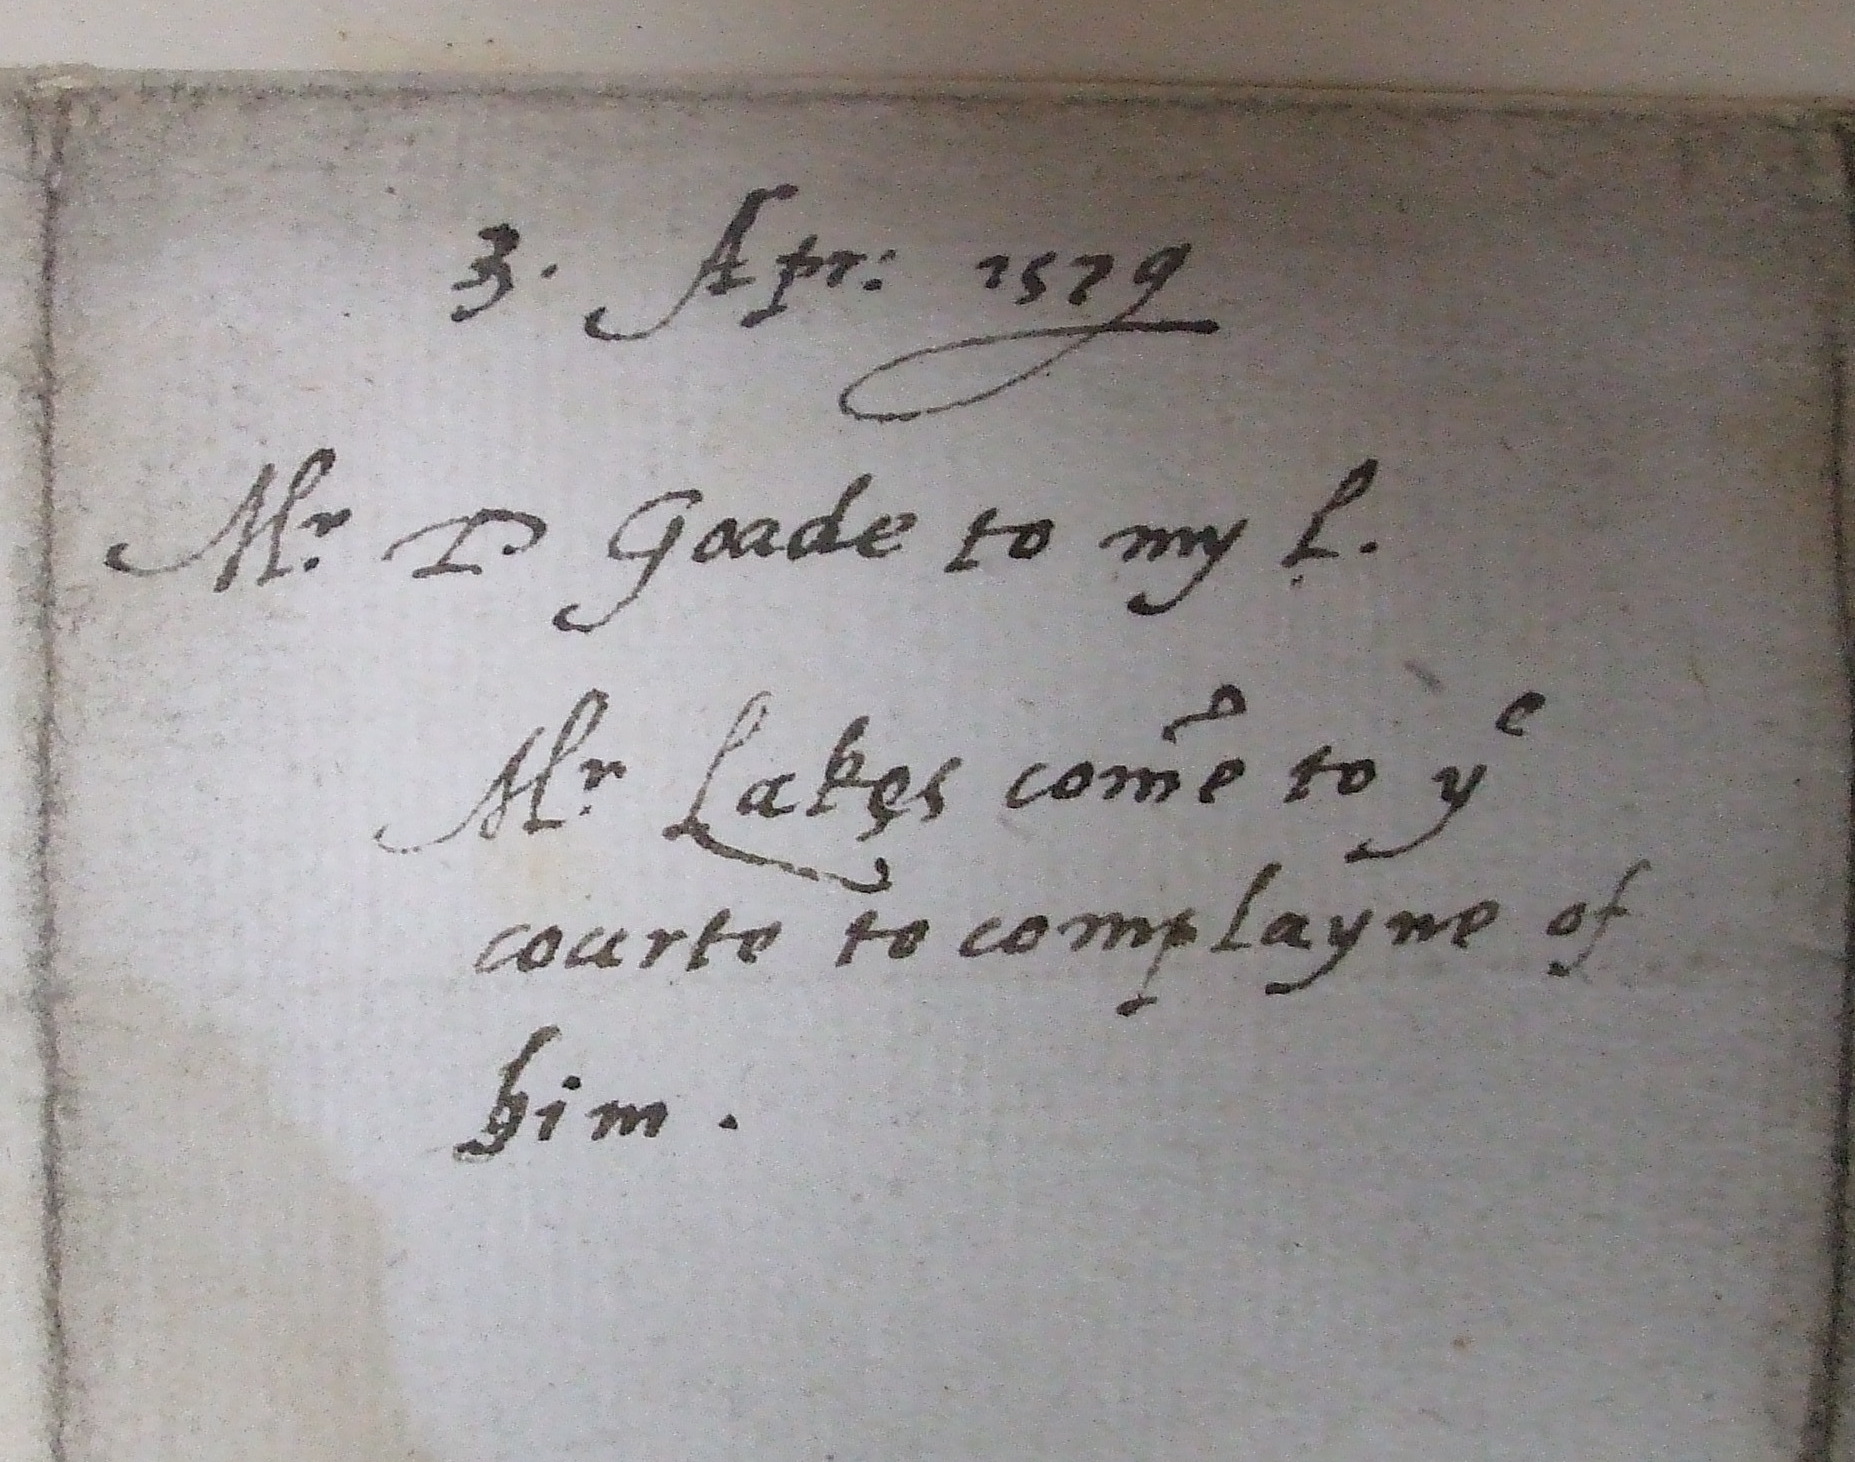 3. Apr: 1579
Mr D Goade to my L.
Mr Lakes com̃e to ye
courte to complayne of
him.